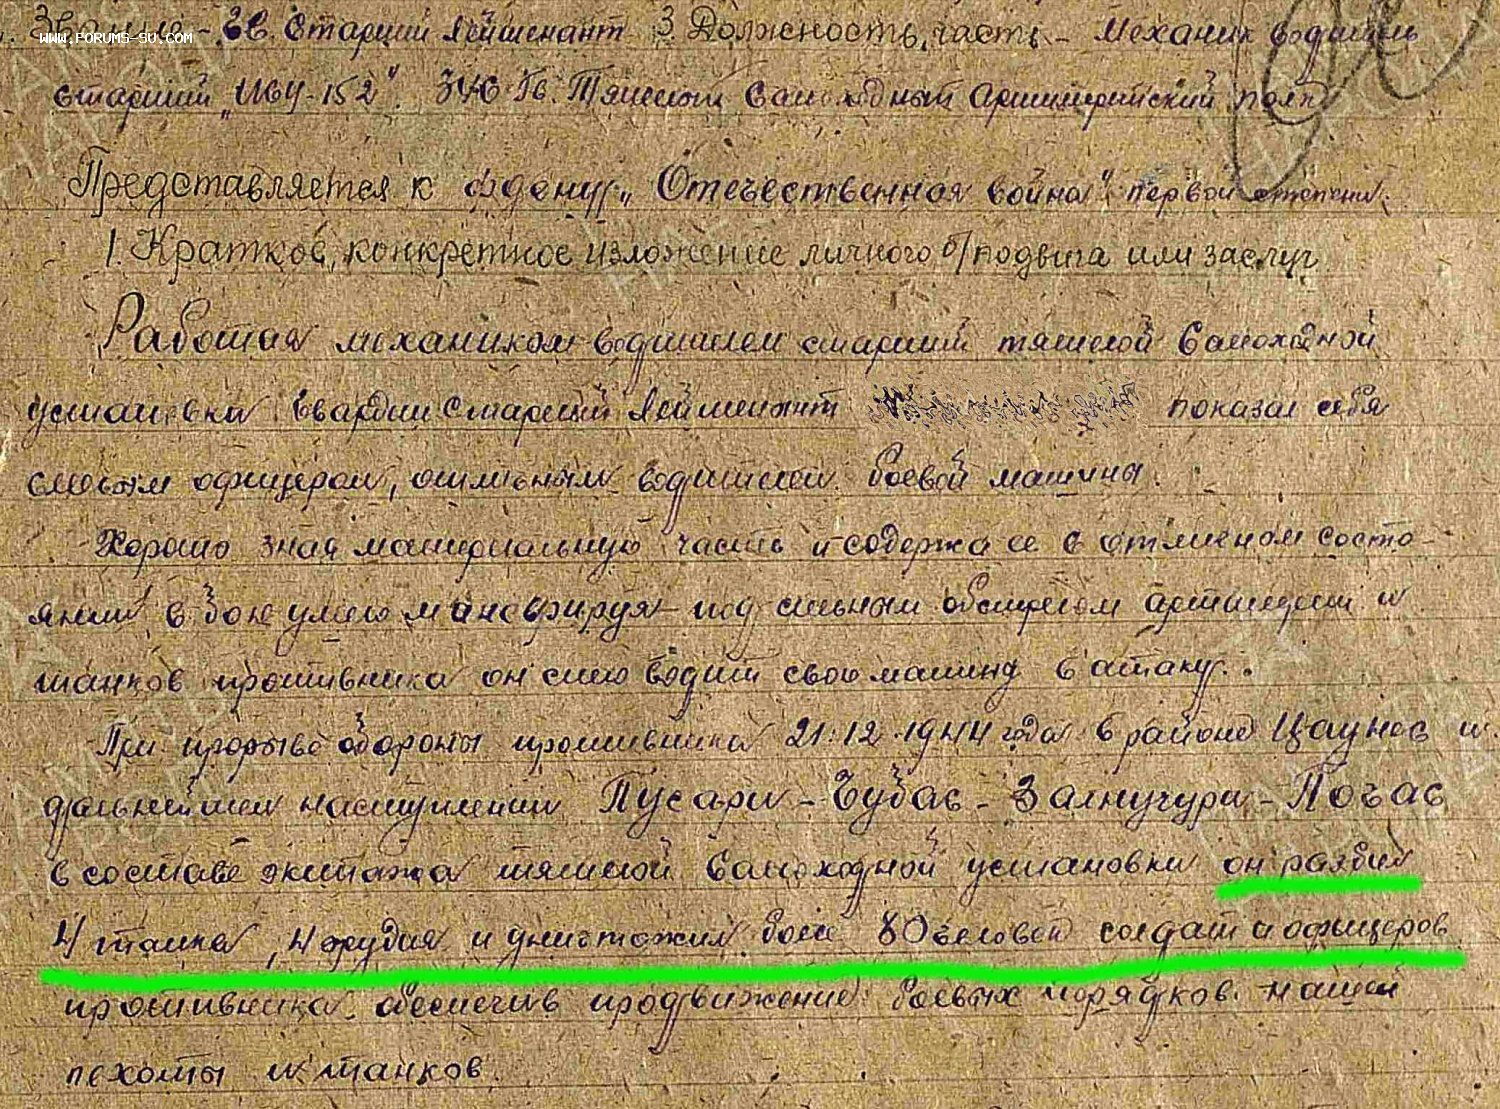 Звание - Гв. Старший Лейтенант 3. Должность, часть - Механик водитель
WWW.FORUMS-SU.COM
старший "ИСУ-152". Гв. Тяжелый Самоходный Артиллерийский полк
Представляется к ордену "Отечественная война" первой степени.
1. Краткое, конкретное изложение личного б/подвига или заслуг
Работая механиком-водителем старшим тяжелой Самоходной
установки гвардии Старший Лейтенант показал себя
смелым офицером, отличным водителем боевой машины.
Хорошо зная материальную часть и содержа ее в отличном состо-
янии, в бою умело маневрируя под сильным обстрелом артиллерии и
танков противника он смело водит свою машину в атаку.
При прорыве обороны противника 21.12.1944 года в районе Цаунес и
дальнейшем наступлении Пусари - Чубас - Залкучури - Погас
в составе экипажа тяжелой Самоходной установки он разбил
4 танка, 4 орудия и уничтожил более 80 человек солдат и офицеров
противника, обеспечив продвижение боевых порядков нашей
пехоты и танков.